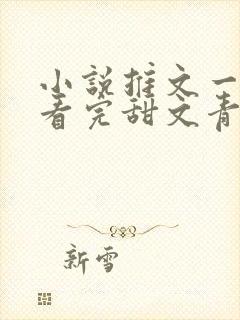 小说推文一
看完甜文青
新雪